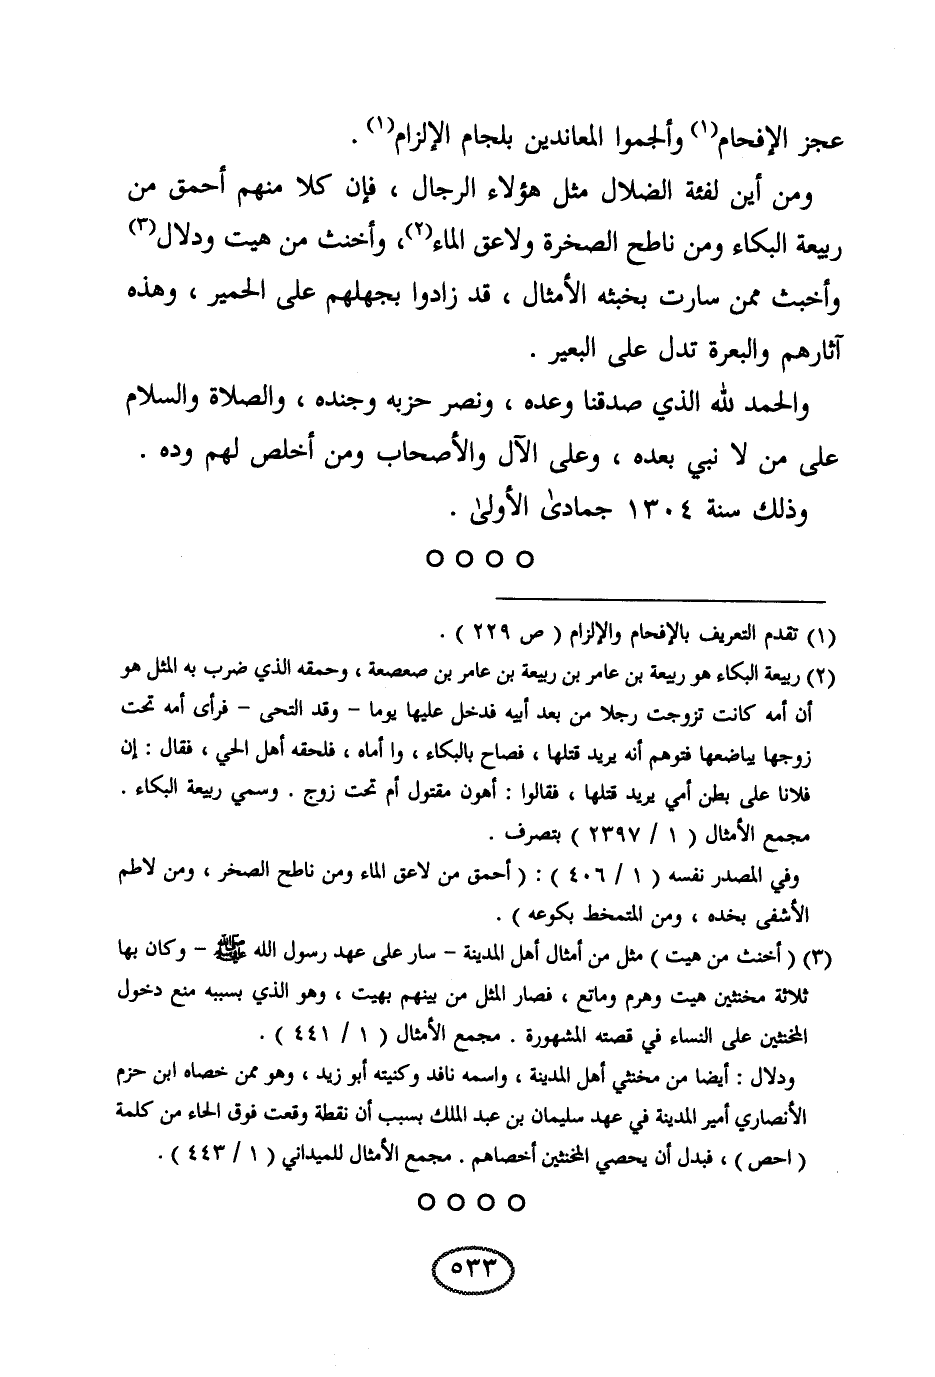 عجز الإفحام(١) وألجموا المعاندين بلجام الإلزام(١) .
ومن أين لفئة الضلال مثل هؤلاء الرجال ، فإن كلا منهم أحمق من
ربيعة البكاء ومن ناطح الصخرة ولاعق الماء(٢)، وأخنث من هيت ودلال(٣)
وأخبث ممن سارت بخبثه الأمثال ، قد زادوا بجهلهم على الحمير ، وهذه
آثارهم والبعرة تدل على البعير .
والحمد لله الذي صدقنا وعده ، ونصر حزبه وجنده ، والصلاة والسلام
على من لا نبي بعده ، وعلى الآل والأصحاب ومن أخلص لهم وده .
وذلك سنة ١٣٠٤ جمادىٰ الأولىٰ .
(١) تقدم التعريف بالإفحام والإلزام ( ص ٢٢٩ ) .
(٢) ربيعة البكاء هو ربيعة بن عامر بن ربيعة بن عامر بن صعصعة ، وحمقه الذي ضرب به المثل هو
أن أمه كانت تزوجت رجلا من بعد أبيه فدخل عليها يوما – وقد التحى – فرأى أمه تحت
زوجها يباضعها فتوهم أنه يريد قتلها ، فصاح بالبكاء ، وا أماه ، فلحقه أهل الحي ، فقال : إن
فلانا على بطن أمي يريد قتلها ، فقالوا : أهون مقتول أم تحت زوج . وسمي ربيعة البكاء .
مجمع الأمثال ( ١ / ٢٣٩٧ ) بتصرف .
وفي المصدر نفسه ( ١ / ٤٠٦ ) : ( أحمق من لاعق الماء ومن ناطح الصخر ، ومن لاطم
الأشفى بخده ، ومن المتمخط بكوعه ) .
(٣) ( أخنث من هيت ) مثل من أمثال أهل المدينة – سار على عهد رسول الله ﷺ – وكان بها
ثلاثة مخنثين هيت وهرم وماتع ، فصار المثل من بينهم بهيت ، وهو الذي بسببه منع دخول
المخنثين على النساء في قصته المشهورة . مجمع الأمثال ( ١ / ٤٤١ ) .
ودلال : أيضا من مخنثي أهل المدينة ، واسمه نافد وكنيته أبو زيد ، وهو ممن خصاه ابن حزم
الأنصاري أمير المدينة في عهد سليمان بن عبد الملك بسبب أن نقطة وقعت فوق الحاء من كلمة
( احص ) ، فبدل أن يحصي المخنثين أخصاهم . مجمع الأمثال للميداني ( ١ / ٤٤٣ ) .
٥٣٣